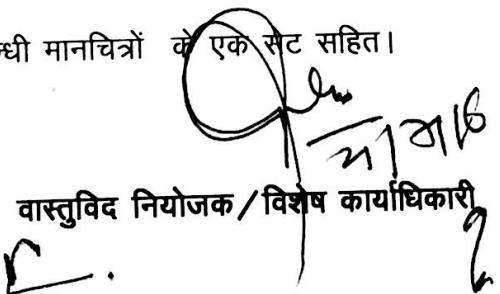 न्धी मानचित्रों के एक सेट सहित।
वास्तुविद नियोजक/विशेष कार्याधिकारी